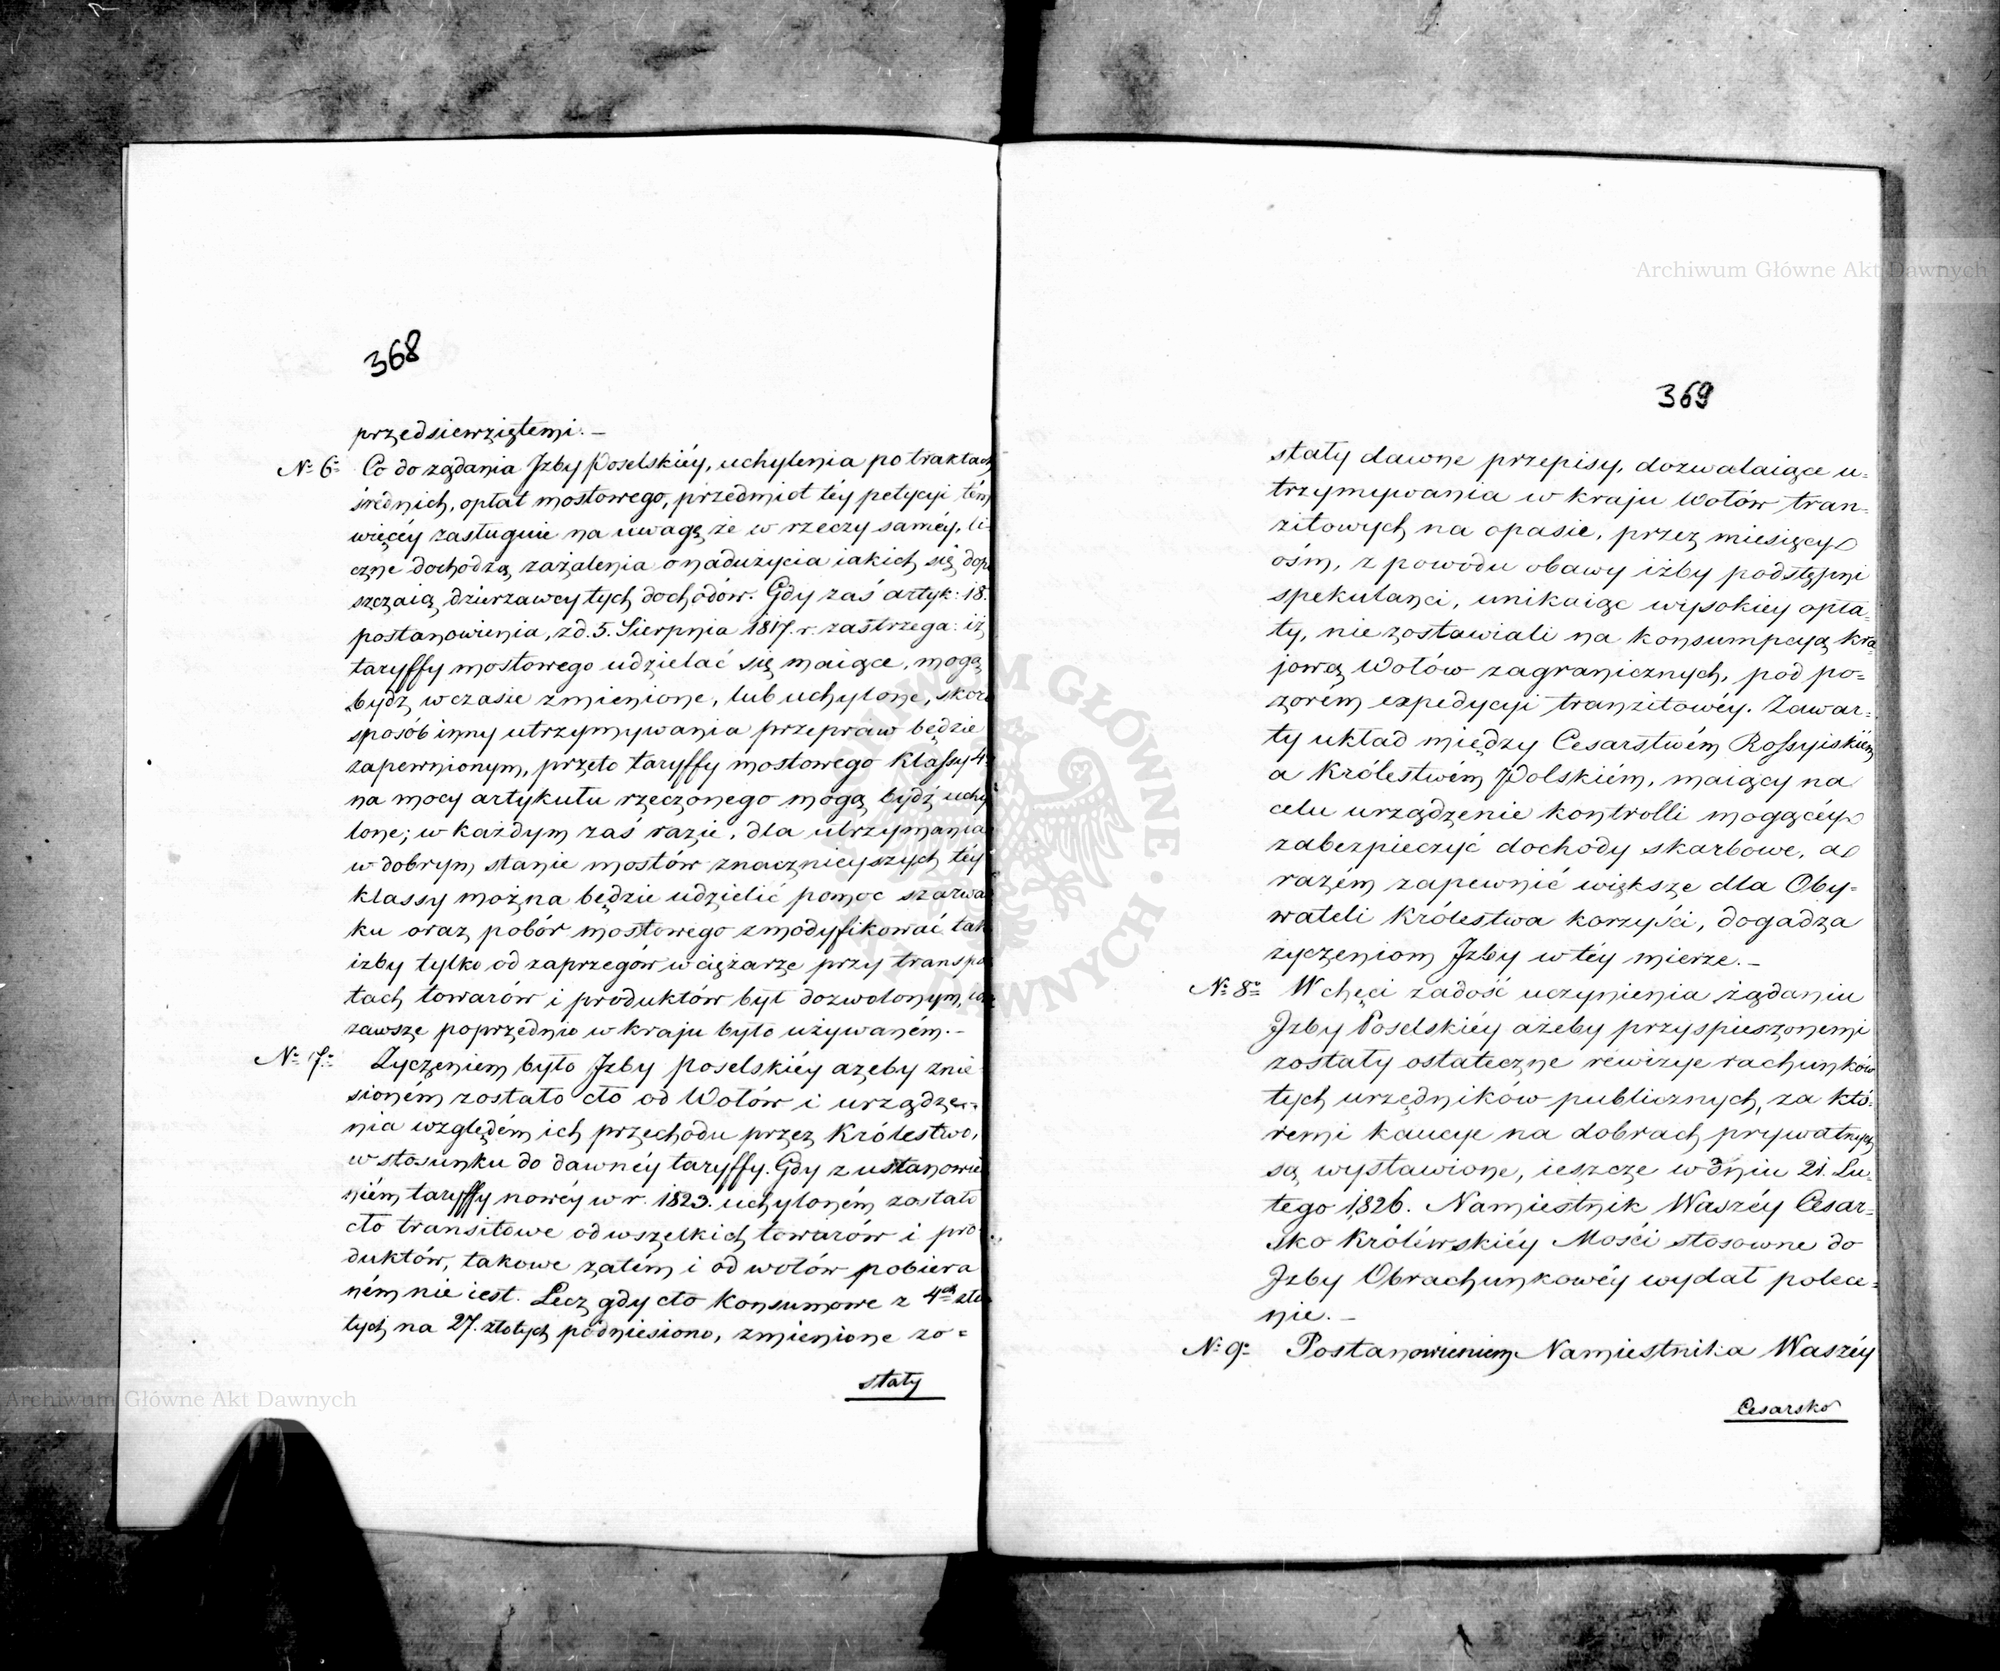 368
przedsiewziętemi. —
No 6o Co do żądania Jzby Poselskiéy, uchylenia po traktach
średnich, opłat mostowego, przedmiot téy petycyi tém
więcéy zasługuie na uwagę że w rzeczy saméy, li-
czne dochodzą zażalenia o nadużycia iakich się dopu
szczaią dzierzawcy tych dochodów. Gdy zaś artyk: 18.
postanowienia, z d. 5. Sierpnia 1817. r. zastrzega: iż
taryffy mostowego udzielać się maiące, mogą
bydź w czasie zmienione, lub uchylone, skoro
sposób inny utrzymywania przepraw będzie
zapewnionym, przeto taryffy mostowego klassy 4
na mocy artykułu rzeczonego mogą bydź uchy
lone; w każdym zaś razie, dla utrzymania
w dobrym stanie mostów znacznieyszych téy
klassy można będzie udzielić pomoc szarwa
ku oraz pobór mostowego zmodyfikować tak
iżby tylko od zaprzęgów w ciężarze przy transpo
tach towarów i produktów był dozwolonym,
zawsze poprzednio w kraju było używaném. —
No 7o Zyczeniem było Jzby Poselskiéy ażeby znie
sioném zostało cło od Wołów i urządze-
nia względém ich przechodu przez Królestwo,
w stosunku do dawnéy taryffy. Gdy z ustanowie
niém taryffy nowéy w r. 1823. uchyloném zostało
cło transitowe od wszelkich towarów i pro-
duktów, takowe zatém i od wołów pobiera
ném nie iest. Lecz gdy cło konsumowe z 4ch zło
tych na 27. złotych podniesiono, zmienione zo=
stały
369
stały dawne przepisy, dozwalaiące u-
trzymywania w kraju Wołów tran-
zitowych na opasie, przez miesięcy
ośm, z powodu obawy iżby podstępni
spekulanci, unikaiąc wysokiey opła-
ty, nie zostawiali na konsumpcyą kra-
jową Wołów zagranicznych, pod po=
zorém expedycyi tranzitowéy. Zawar-
ty układ między Cesarstwém Rossyiskiém
a Królestwém Polskiém, maiący na
celu urządzenie kontrolli mogącéy
zabezpieczyć dochody skarbowe, a
razém zapewnić większe dla Oby-
wateli Królestwa korzyści, dogadza
życzeniom Jzby w téy mierze. —
No 8o W chęci zadość uczynienia żądaniu
Jzby Poselskiéy ażeby przyspieszonemi
zostały ostateczne rewizye rachunków
tych urzędników publicznych, za któ-
remi kaucye na dobrach prywatnych
są wystawione, ieszcze w dniu 21. Lu-
tego 1826. Namiestnik Waszéy Cesar=
sko Królewskiéy Mości stosowne do
Jzby Obrachunkowéy wydał polece=
nie. —
No 9o Postanowieniem Namiestnika Waszéy
Cesarsko
Archiwum Główne Akt Dawnych
Archiwum Główne Akt Dawnych